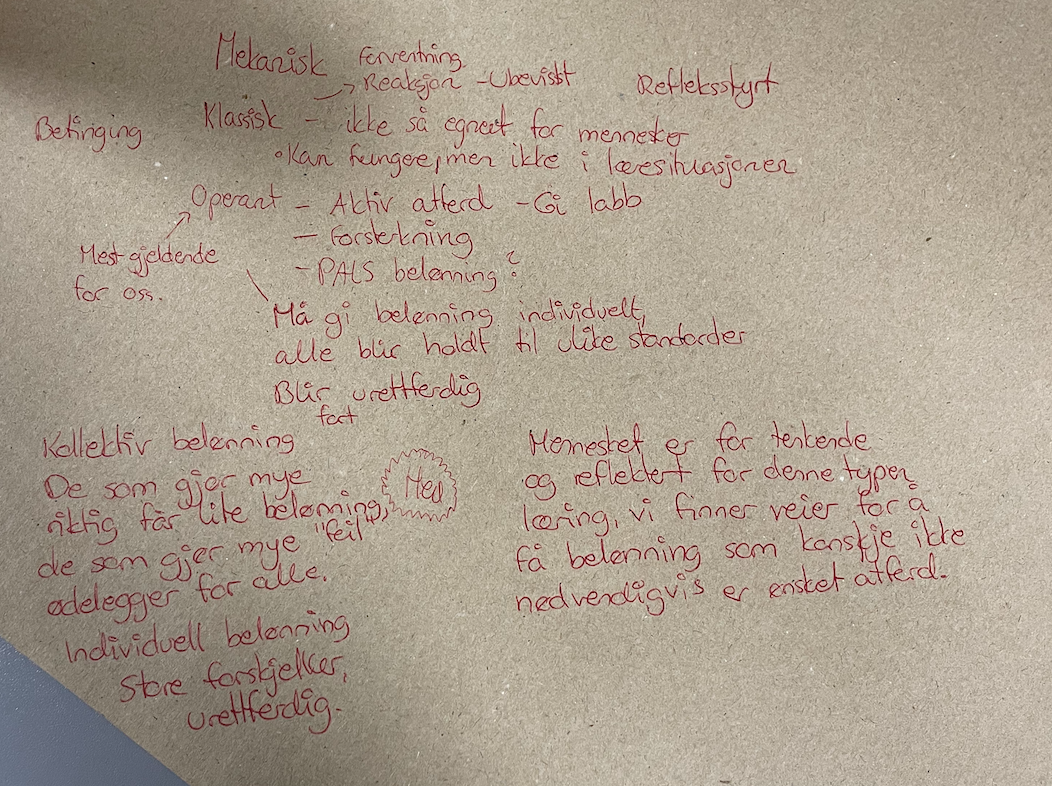 Mekanisk Forventning
→ Reaksjon - Ubevisst Refleksstyrt
Betinging Klassisk - ikke så egnet for mennesker
• Kan fungere, men ikke i læresituasjoner
Operant - Aktiv atferd - Gi labb
- Forsterkning
Mest gjeldende
for oss.
- PALS belønning?
Må gi belønning individuelt,
alle blir holdt til ulike standarder
Blir urettferdig
fort
Kollektiv belønning
De som gjør mye
riktig får lite belønning,
de som gjør mye "feil"
ødelegger for alle.
Individuell belønning
Store forskjeller,
urettferdig.
Mennesket er for tenkende
og reflektert for denne typen
læring, vi finner veier for å
få belønning som kanskje ikke
nødvendigvis er ønsket atferd.